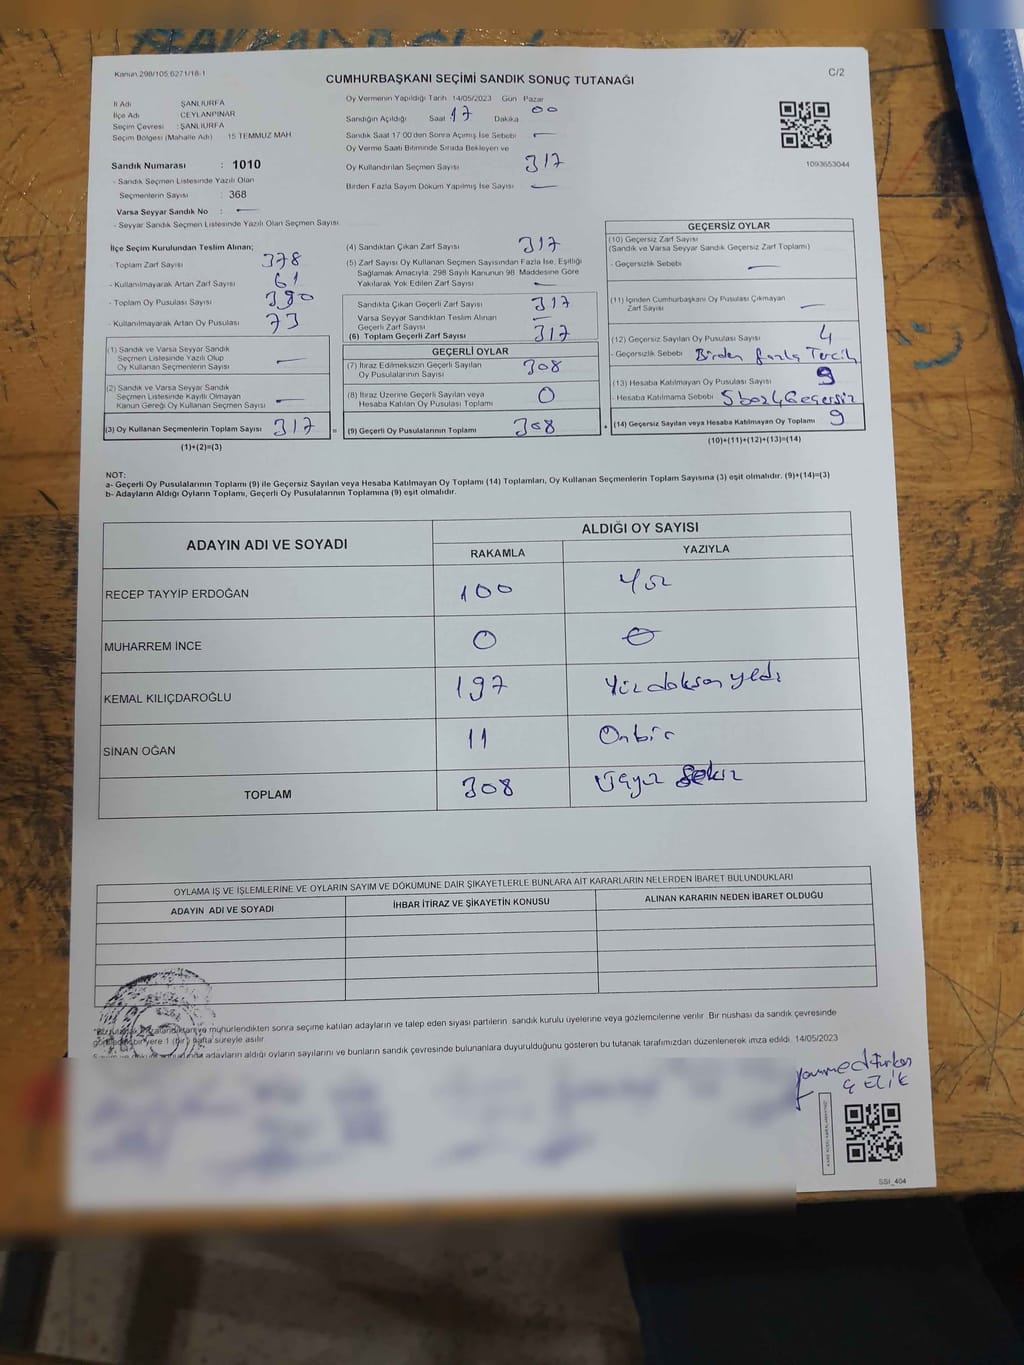 Kanun 298/105 6271/18-1
C/2
CUMHURBAŞKANI SEÇİMİ SANDIK SONUÇ TUTANAĞI
İl Adı ŞANLIURFA
İlçe Adı CEYLANPINAR
Seçim Çevresi : ŞANLIURFA
Seçim Bölgesi (Mahalle Adı) 15 TEMMUZ MAH
Sandık Numarası : 1010
- Sandık Seçmen Listesinde Yazılı Olan
Seçmenlerin Sayısı : 368
Varsa Seyyar Sandık No : —
- Seyyar Sandık Seçmen Listesinde Yazılı Olan Seçmen Sayısı
Oy Vermenin Yapıldığı Tarih 14/05/2023 Gün Pazar
Sandığın Açıldığı Saat 17 Dakika 00
Sandık Saat 17 00 den Sonra Açılmış İse Sebebi —
Oy Verme Saati Bitiminde Sırada Bekleyen ve
Oy Kullandırılan Seçmen Sayısı 317
Birden Fazla Sayım Döküm Yapılmış İse Sayısı —
1093653044
İlçe Seçim Kurulundan Teslim Alınan;
- Toplam Zarf Sayısı 378
- Kullanılmayarak Artan Zarf Sayısı 61
- Toplam Oy Pusulası Sayısı 390
- Kullanılmayarak Artan Oy Pusulası 73
(1) Sandık ve Varsa Seyyar Sandık
Seçmen Listesinde Yazılı Olup
Oy Kullanan Seçmenlerin Sayısı —
(2) Sandık ve Varsa Seyyar Sandık
Seçmen Listesinde Kayıtlı Olmayan
Kanun Gereği Oy Kullanan Seçmen Sayısı —
(3) Oy Kullanan Seçmenlerin Toplam Sayısı 317
(1)+(2)=(3)
(4) Sandıktan Çıkan Zarf Sayısı 317
(5) Zarf Sayısı Oy Kullanan Seçmen Sayısından Fazla İse, Eşitliği
Sağlamak Amacıyla, 298 Sayılı Kanunun 98. Maddesine Göre
Yakılarak Yok Edilen Zarf Sayısı —
Sandıkta Çıkan Geçerli Zarf Sayısı 317
Varsa Seyyar Sandıktan Teslim Alınan
Geçerli Zarf Sayısı —
(6) Toplam Geçerli Zarf Sayısı 317
GEÇERLİ OYLAR
(7) İtiraz Edilmeksizin Geçerli Sayılan
Oy Pusulalarının Sayısı 308
(8) İtiraz Üzerine Geçerli Sayılan veya
Hesaba Katılan Oy Pusulası Toplamı 0
= (9) Geçerli Oy Pusulalarının Toplamı 308
GEÇERSİZ OYLAR
(10) Geçersiz Zarf Sayısı
(Sandık ve Varsa Seyyar Sandık Geçersiz Zarf Toplamı)
- Geçersizlik Sebebi —
(11) İçinden Cumhurbaşkanı Oy Pusulası Çıkmayan
Zarf Sayısı —
(12) Geçersiz Sayılan Oy Pusulası Sayısı 4
- Geçersizlik Sebebi Birden fazla Tercih
(13) Hesaba Katılmayan Oy Pusulası Sayısı 9
- Hesaba Katılmama Sebebi 5 boş 4 Geçersiz
+ (14) Geçersiz Sayılan veya Hesaba Katılmayan Oy Toplamı 9
(10)+(11)+(12)+(13)=(14)
NOT:
a- Geçerli Oy Pusulalarının Toplamı (9) ile Geçersiz Sayılan veya Hesaba Katılmayan Oy Toplamı (14) Toplamları, Oy Kullanan Seçmenlerin Toplam Sayısına (3) eşit olmalıdır. (9)+(14)=(3)
b- Adayların Aldığı Oyların Toplamı, Geçerli Oy Pusulalarının Toplamına (9) eşit olmalıdır.
ADAYIN ADI VE SOYADI
ALDIĞI OY SAYISI
RAKAMLA YAZIYLA
RECEP TAYYİP ERDOĞAN 100 Yüz
MUHARREM İNCE 0 0
KEMAL KILIÇDAROĞLU 197 Yüz doksan yedi
SİNAN OĞAN 11 Onbir
TOPLAM 308 Üçyüz Sekiz
OYLAMA İŞ VE İŞLEMLERİNE VE OYLARIN SAYIM VE DÖKÜMÜNE DAİR ŞİKAYETLERLE BUNLARA AİT KARARLARIN NELERDEN İBARET BULUNDUKLARI
ADAYIN ADI VE SOYADI İHBAR İTİRAZ VE ŞİKAYETİN KONUSU ALINAN KARARIN NEDEN İBARET OLDUĞU
mühürlendikten sonra seçime katılan adayların ve talep eden siyasi partilerin sandık kurulu üyelerine veya gözlemcilerine verilir. Bir nüshası da sandık çevresinde
bir yere 1 (bir) hafta süreyle asılır
adayların aldığı oyların sayılarını ve bunların sandık çevresinde bulunanlara duyurulduğunu gösteren bu tutanak tarafımızdan düzenlenerek imza edildi. 14/05/2023
ÇELİK
SSI_404